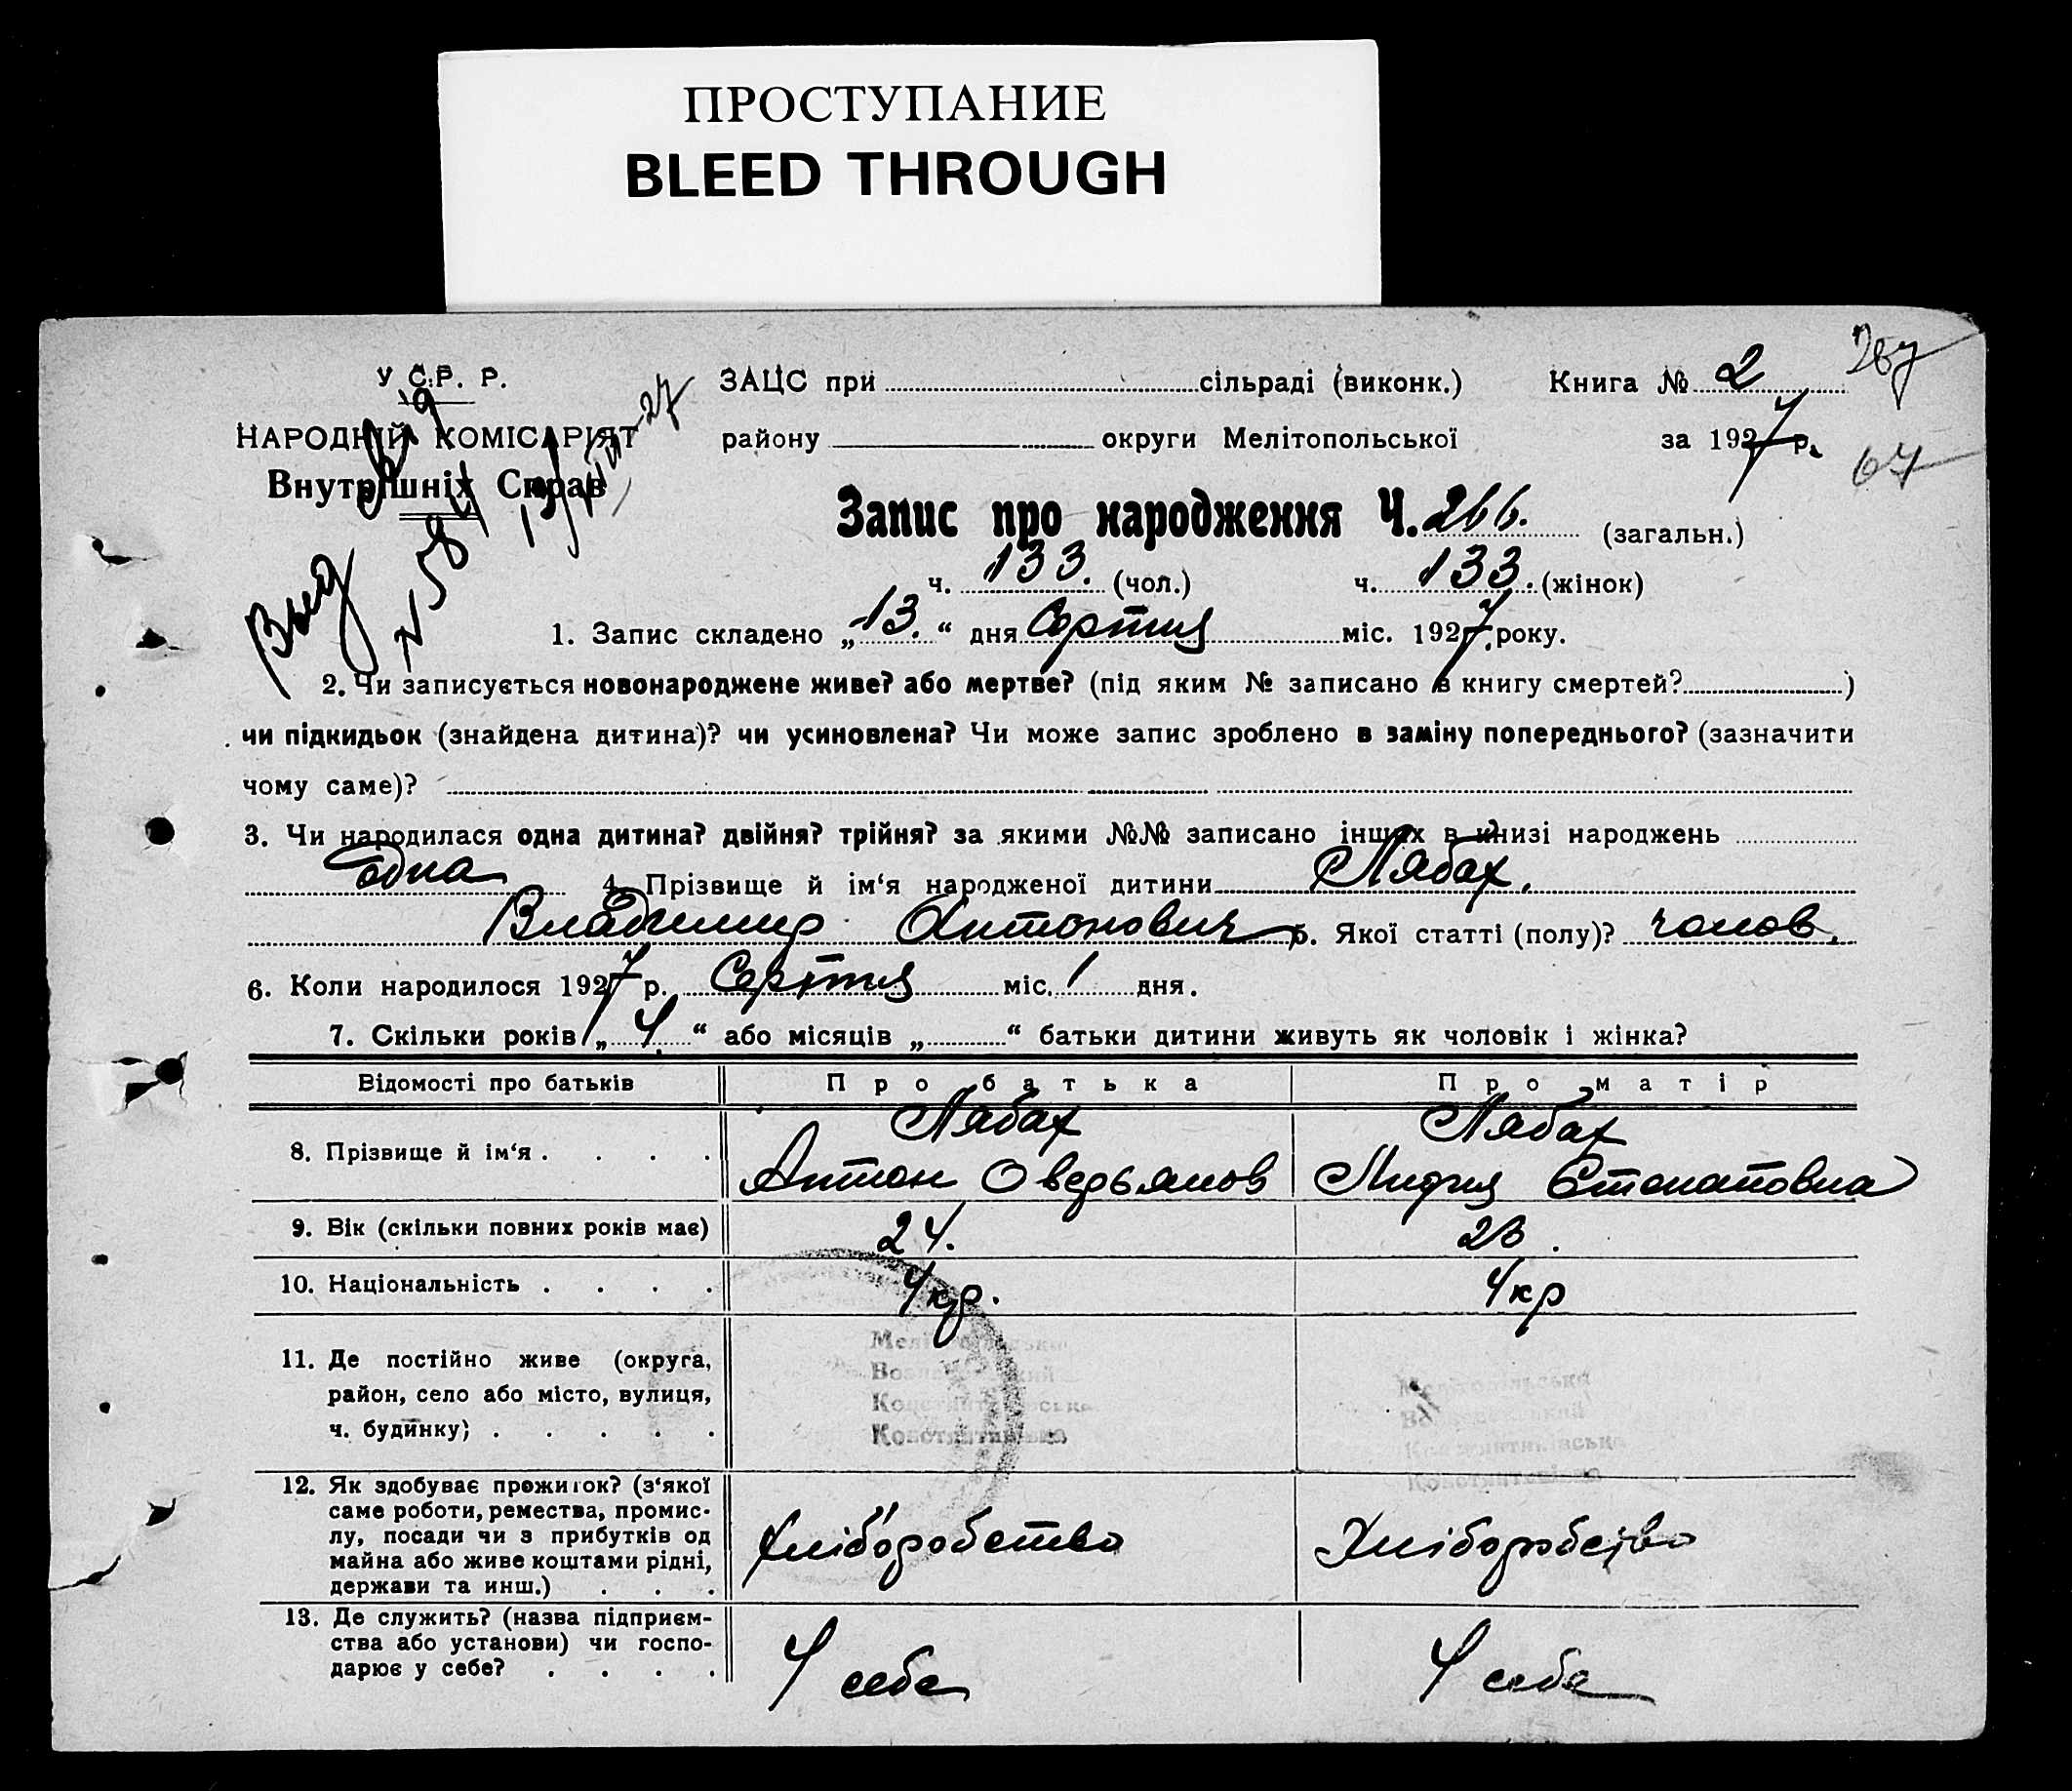 ПРОСТУПАНИЕ
BLEED THROUGH
У С.Р. Р.
ЗАЦС при сільраді (виконк.) Книга № 2
НАРОДНІЙ КОМІСАРІЯТ
району округи Мелітопольської за 1927 р.
67
Внутрішніх Справ
Запис про народження Ч. 266. (загальн.)
Выд
ч. 133. (чол.) ч. 133. (жінок)
1. Запис складено „13.“ дня Серпня міс. 1927 року.
2. Чи записується новонароджене живе? або мертве? (під яким № записано в книгу смертей? )
чи підкидьок (знайдена дитина)? чи усиновлена? Чи може запис зроблено в заміну попереднього? (зазначити
чому саме)?
3. Чи народилася одна дитина? двійня? трійня? за якими №№ записано інших в книзі народжень
Одна 4. Прізвище й ім‘я народженої дитини Лябах.
Владимир Антонович 5. Якої статті (полу)? чолов.
6. Коли народилося 1927 р. Серпня міс. 1 дня.
7. Скільки років „4“ або місяців „ “ батьки дитини живуть як чоловік і жінка?
Відомості про батьків Про батька Про матір
Лябах Лябах
8. Прізвище й ім‘я . . . .
Антон Оведьянов Лидия
9. Вік (скільки повних років має) 24. 23.
10. Національність . . . . Укр. Укр
11. Де постійно живе (округа,
район, село або місто, вулиця,
ч. будинку) . . . . .
12. Як здобуває прожиток? (з‘якої
саме роботи, ремества, промис-
лу, посади чи з прибутків од
майна або живе коштами рідні,
держави та инш.) . . .
Хліборобство Хліборобство
13. Де служить? (назва підприєм-
ства або установи) чи госпо-
дарює у себе? . . . .
У себе У себе